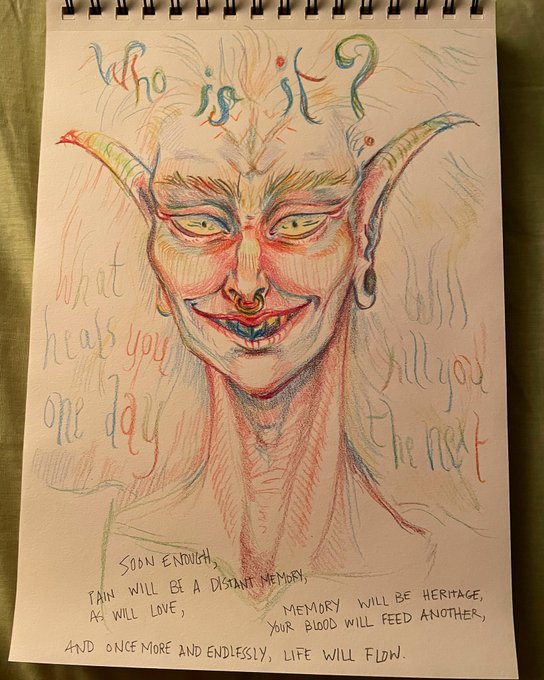 Who is it?
What
heals you
one day
Will
kill you
the next
SOON ENOUGH,
PAIN WILL BE A DISTANT MEMORY,
AS WILL LOVE,
MEMORY WILL BE HERITAGE,
YOUR BLOOD WILL FEED ANOTHER,
AND ONCE MORE AND ENDLESSLY, LIFE WILL FLOW.